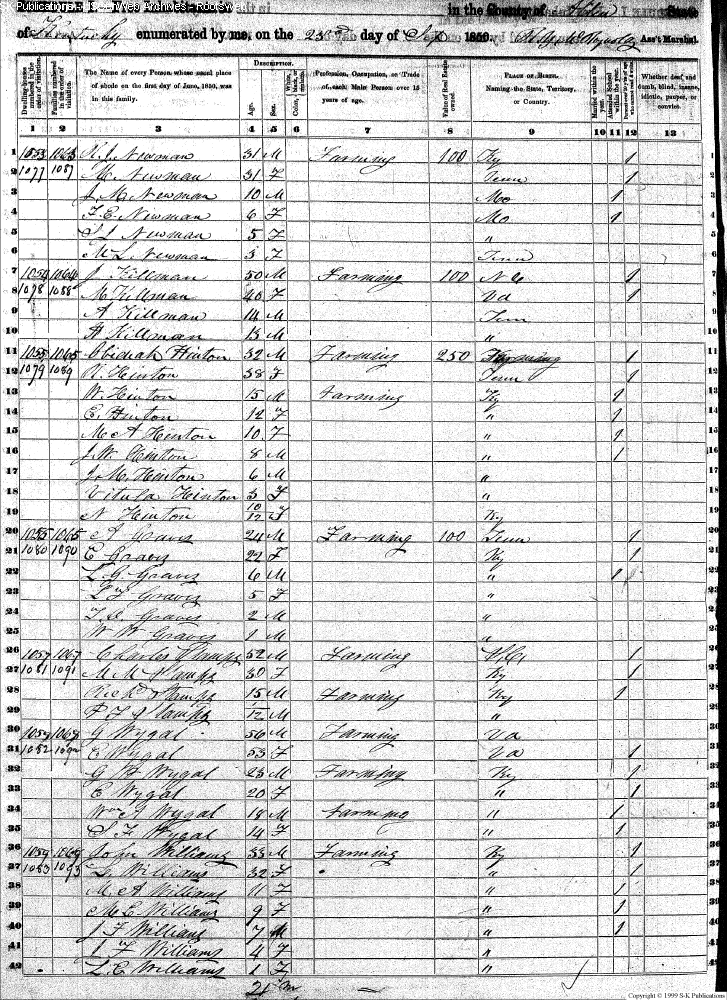 Publications - US-Census Web Archives - Rootsweb
in the County of Allen State
of Kentucky enumerated by me, on the 23rd day of Sept 1850. Ass't Marshal.
Dwelling-houses numbered in the order of visitation.
Families numbered in the order of visitation.
The Name of every Person whose usual place of abode on the first day of June, 1850, was in this family.
DESCRIPTION.
Age.
Sex.
White, black, or mulatto.
Color
Profession, Occupation, or Trade of each Male Person over 15 years of age.
Value of Real Estate owned.
PLACE OF BIRTH. Naming the State, Territory, or Country.
Married within the year.
Attended School within the year.
Whether deaf and dumb, blind, insane, idiotic, pauper, or convict.
1 2 3 4 5 6 7 8 9 10 11 12 13
1 1053 1063 Newman 31 M Farming 100 Ky 1
2 1077 1087 M Newman 31 F Tenn 1
3 J M Newman 10 M Mo 1
4 F E Newman 6 F Mo 1
5 Newman 5 F "
6 M L Newman 3 F Tenn
7 1054 1064 J Killman 50 M Farming 100 N C 1
8 1078 1088 M Killman 40 F Va 1
9 A Killman 14 M Tenn
10 H Killman 13 M "
11 1055 1065 Obidiah Hinton 32 M Farming 250 Farming 1
12 1079 1089 Hinton 38 F Tenn 1
13 W. Hinton 15 M Farming Ky 1
14 E. Hinton 12 F " 1
15 M A Hinton 10 F " 1
16 J. W. Hinton 8 M " 1
17 J. M. Hinton 6 M "
18 Vitula Hinton 3 F "
19 N Hinton 10/12 F Ky
20 1055 1065 A Graves 24 M Farming 100 Tenn 1
21 1080 1090 E Graves 22 F Ky 1
22 L. G. Graves 6 M " 1
23 L F Graves 5 F "
24 Graves 2 M "
25 W W Graves 1 M "
26 1057 1067 Charles Stamps 52 M Farming N.C. 1
27 1081 1091 M M Stamps 30 F Ky 1
28 Rich'd Stamps 15 M Farming Ky 1
29 Stamps M "
30 1058 1068 G Wygal 56 M Farming Va
31 1082 1092 E Wygal 53 F Va 1
32 G H Wygal 23 M Farming Ky 1
33 E Wygal 20 F " 1
34 Wm A Wygal 18 M Farming " 1
35 S F Wygal 14 F " 1
36 1059 1069 John Williams 33 M Farming Ky 1
37 1083 1093 L. Williams 32 F " 1
38 M A Williams 11 F " 1
39 M E Williams 9 F " 1
40 J F Williams 7 M " 1
41 Williams 4 F "
42 L. E. Williams 1 F "
21 m
Copyright © 1999 S-K Publications